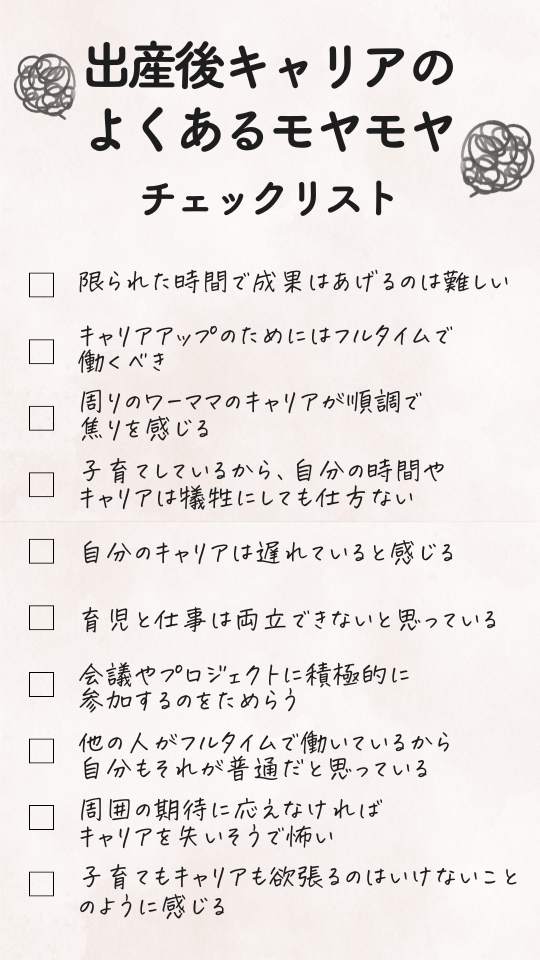 出産後キャリアの
よくあるモヤモヤ
チェックリスト
限られた時間で成果はあげるのは難しい
キャリアアップのためにはフルタイムで
働くべき
周りのワーママのキャリアが順調で
焦りを感じる
子育てしているから、自分の時間や
キャリアは犠牲にしても仕方ない
自分のキャリアは遅れていると感じる
育児と仕事は両立できないと思っている
会議やプロジェクトに積極的に
参加するのをためらう
他の人がフルタイムで働いているから
自分もそれが普通だと思っている
周囲の期待に応えなければ
キャリアを失いそうで怖い
子育てもキャリアも欲張るのはいけないこと
のように感じる